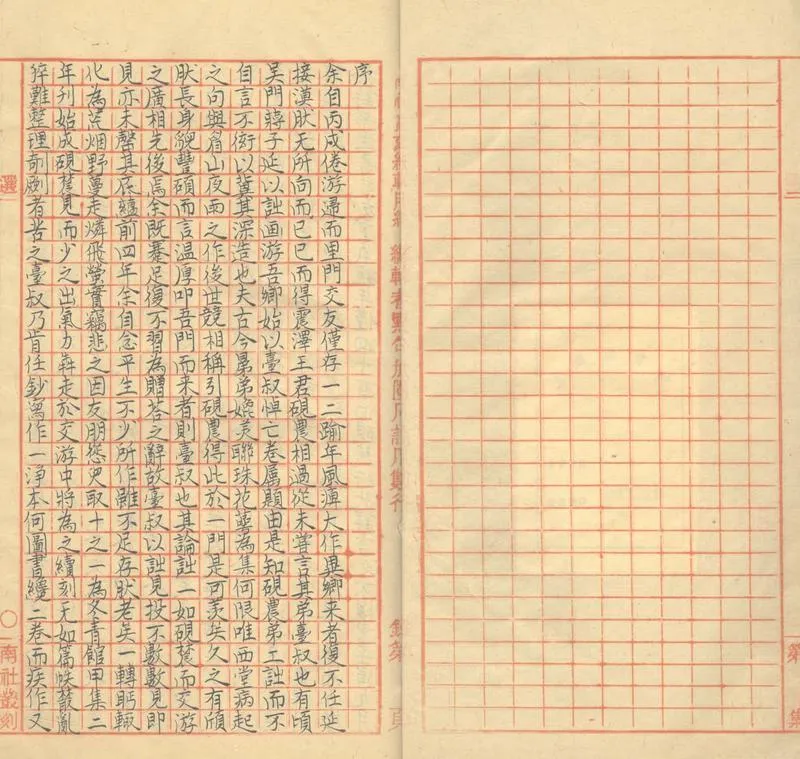 第 集
序
余自丙戌倦游歸而里門交友僅存一二踰年風痺大作異鄉来者復不任延
接漠肰无所向而已已而得震澤王君硯農相過從未嘗言其弟臺叔也有頃
吴門蔣子延以詩画游吾鄉始以臺叔悼亡卷属題由是知硯農弟工詩而不
自言不衒以冀其深造也夫古今晜弟媲美聯珠花萼為集何限唯西堂病起
之句與眉山夜雨之作後世競相稱引硯農得此於一門是可羨矣久之有頎
肰長身貌豐碩而言温厚叩吾門而来者則臺叔也其論詩一如硯農而交游
之廣相先後焉余既蹇足復不習為贈荅之辭故臺叔以詩見投不數數見即
見亦未罄其底緼前四年余自念平生不少所作雖不足存肰老矣一轉眄輙
化為荒烟野蔓走燐飛螢實竊悲之因友朋慫臾取十之一為冬青館甲集二
年刊始成硯農見而少之出氣力犇走於交游中將為之續刻无如篇帙叢亂
猝難整理剞劂者苦之臺叔乃肯任鈔寫作一浄本何圖書纔二卷而疾作又
選 ○ 南社叢刻